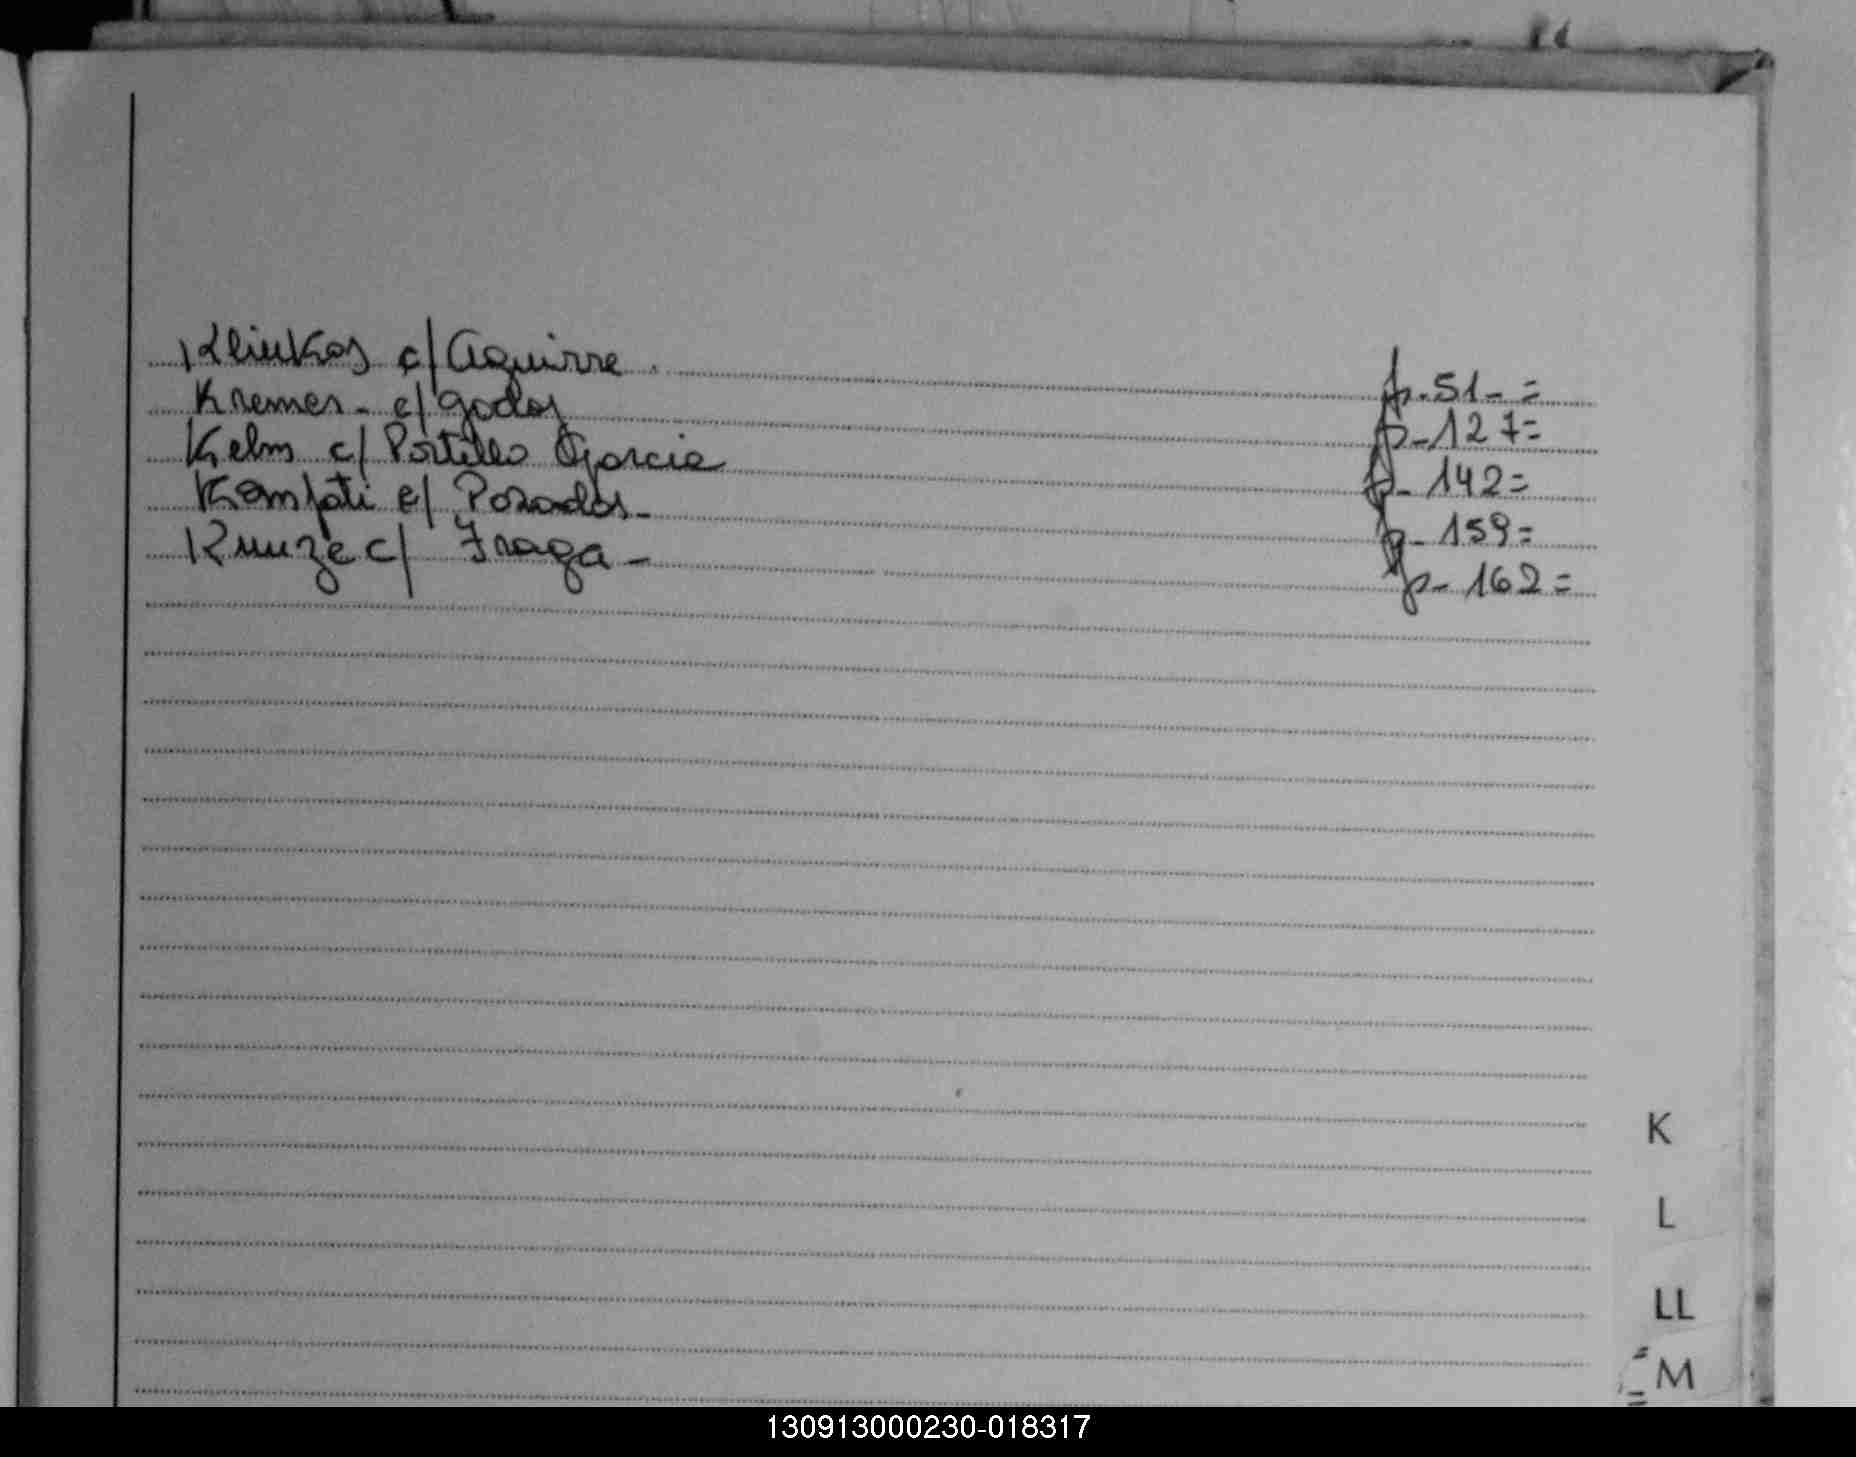 Kliukos c/ Aguirre. p. 51-=
Kremer- c/ Godoy p- 127=
Kelm c/ Portillo Garcia p- 142=
c/ Posadas- p- 159=
Kunze c/ Fraga- p- 162=
K
L
LL
M
130913000230-018317